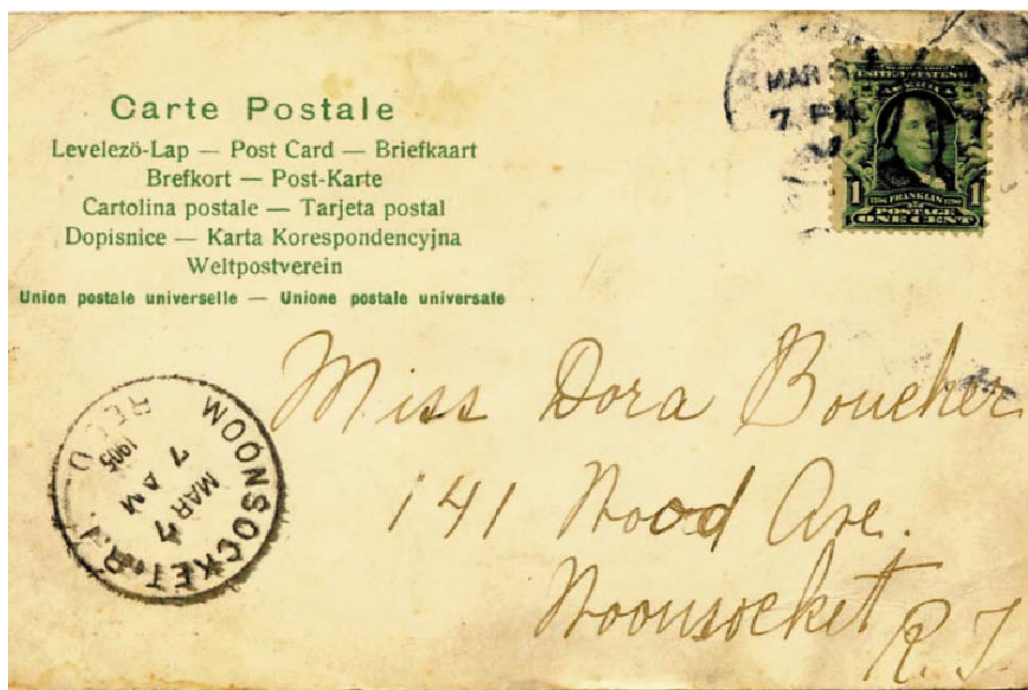 Carte Postale
Levelezö-Lap — Post Card — Briefkaart
Brefkort — Post-Karte
Cartolina postale — Tarjeta postal
Dopisnice — Karta Korespondencyjna
Weltpostverein
Union postale universelle — Unione postale universale
MAR
7 PM
UNITED STATES OF
AMERICA
1 1
FRANKLIN
POSTAGE
ONE CENT
Miss Dora Boucher
141 Wood Ave.
Woonsocket
R. I.
WOONSOCKET, R.I.
MAR 7
7 AM
1905
REC'D